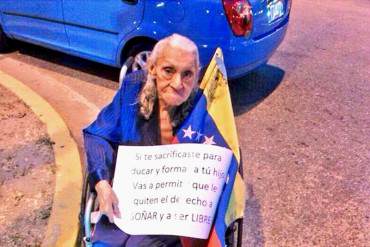 Si te sacrificaste para
ducar y forma a tú hijo
Vas a permit que le
quiten el de echo a
SOÑAR y a ser LIBRE